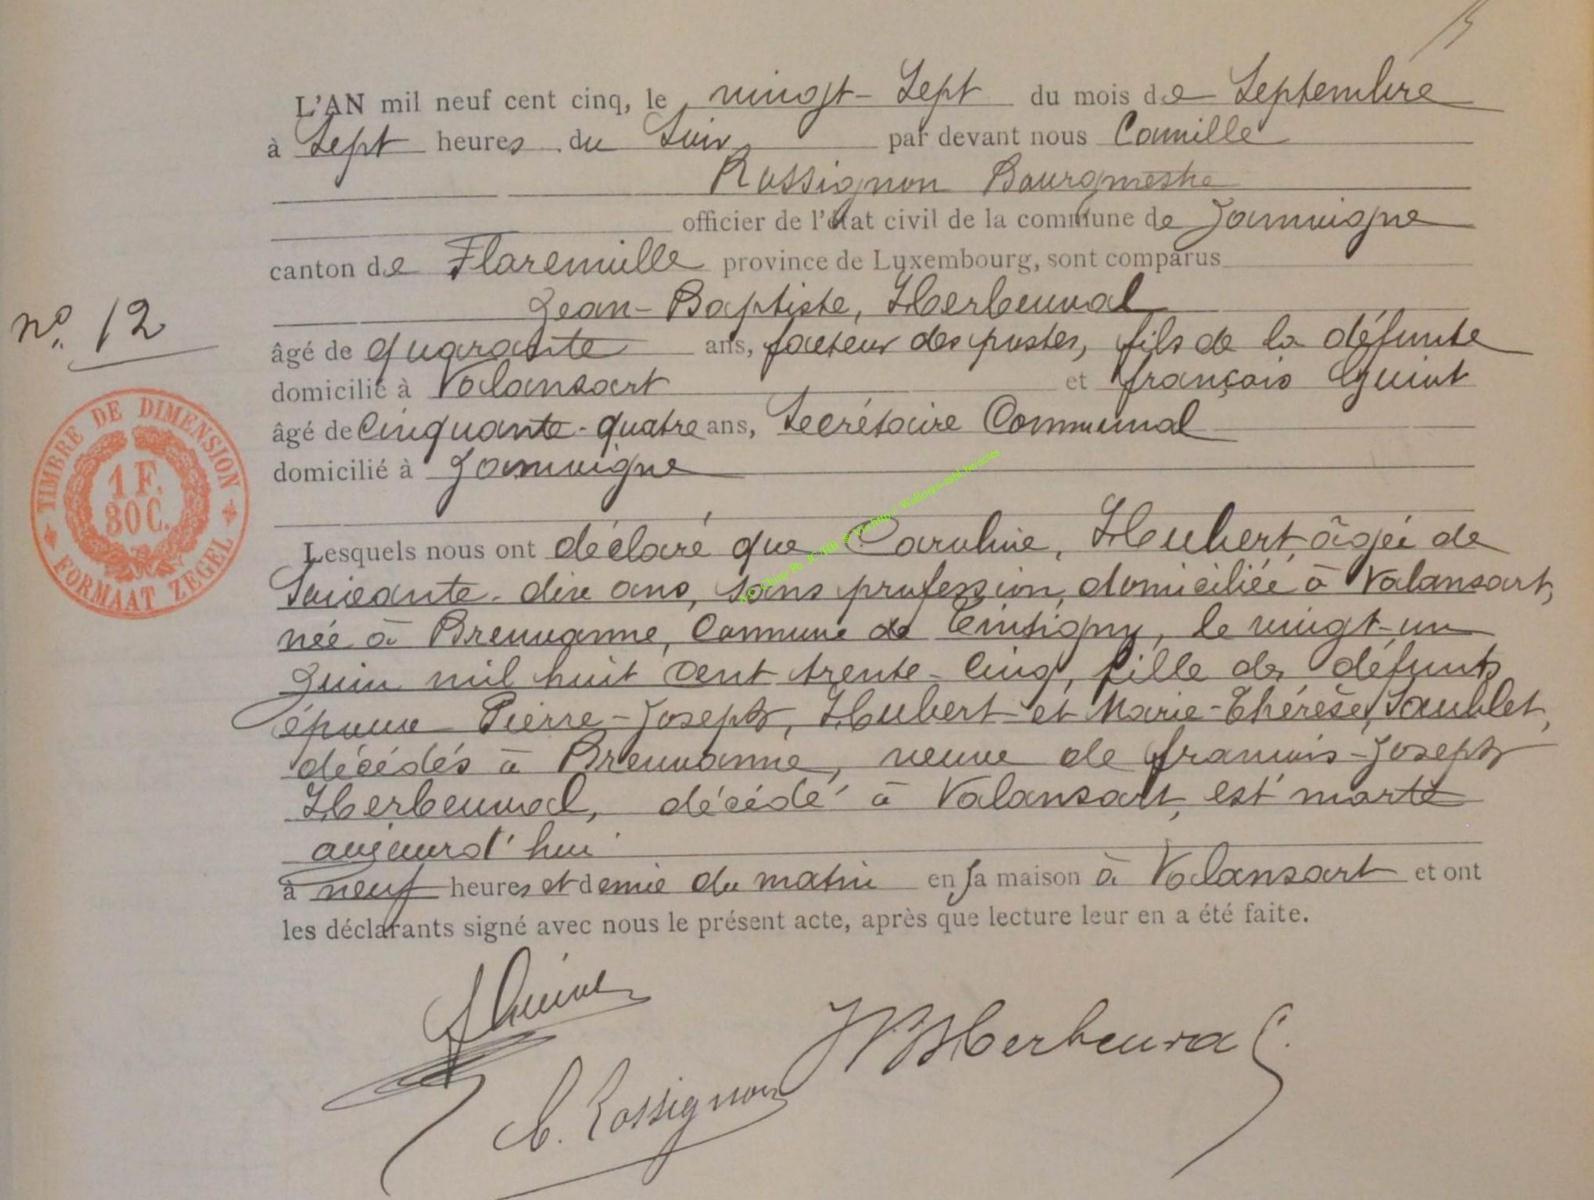 L'AN mil neuf cent cinq, le vingt-sept du mois de Septembre
à Sept heures du Soir par devant nous Camille
Rossignon Bourgmestre
officier de l'état civil de la commune de Jamoigne
canton de Florenville province de Luxembourg, sont comparus
Jean-Baptiste, Herbeuval
nº. 12
âgé de quarante ans, facteur des postes, fils de la défunte
domicilié à Valansart et françois Guiot
âgé de Cinquante-quatre ans, Secrétaire Communal
domicilié à Jamoigne
TIMBRE DE DIMENSION
1 F.
30 C.
FORMAAT ZEGEL
Lesquels nous ont déclaré que Caroline, Hubert, âgée de
Soixante-dix ans, sans profession, domiciliée à Valansart,
née à Breuvanne, Commune de Tintigny, le vingt-un
Juin mil huit cent trente-cinq, fille des défunts
époux Pierre-Joseph, Hubert et Marie-Thérèse, Saublet,
décédés à Breuvanne, veuve de françois-Joseph
Herbeuval, décédé à Valansart, est morte
aujourd'hui
à neuf heures et demie du matin en sa maison à Valansart et ont
les déclarants signé avec nous le présent acte, après que lecture leur en a été faite.
JB Herbeuval.
C. Rossignon